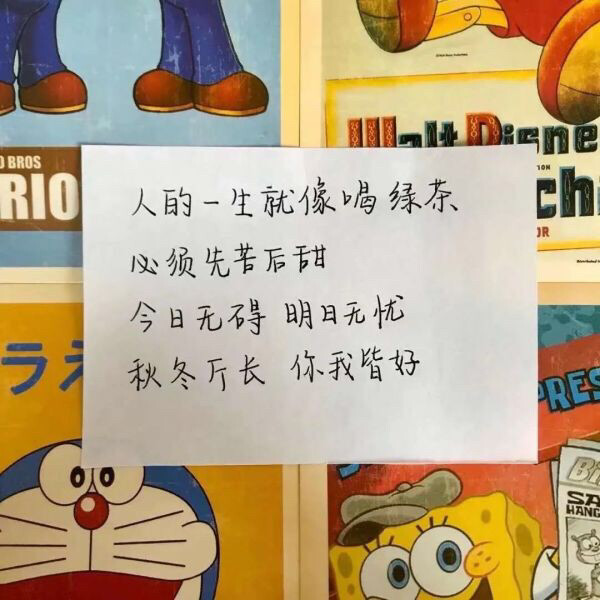 BROS
RIO
Walt Disne
ch
OR
人的一生就像喝绿茶
必须先苦后甜
今日无碍 明日无忧
秋冬斤长 你我皆好
ラ
PRES
SA
HANG